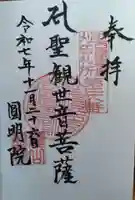 奉拝
聖観世音菩薩
令和七年十一月二十六日
圓明院